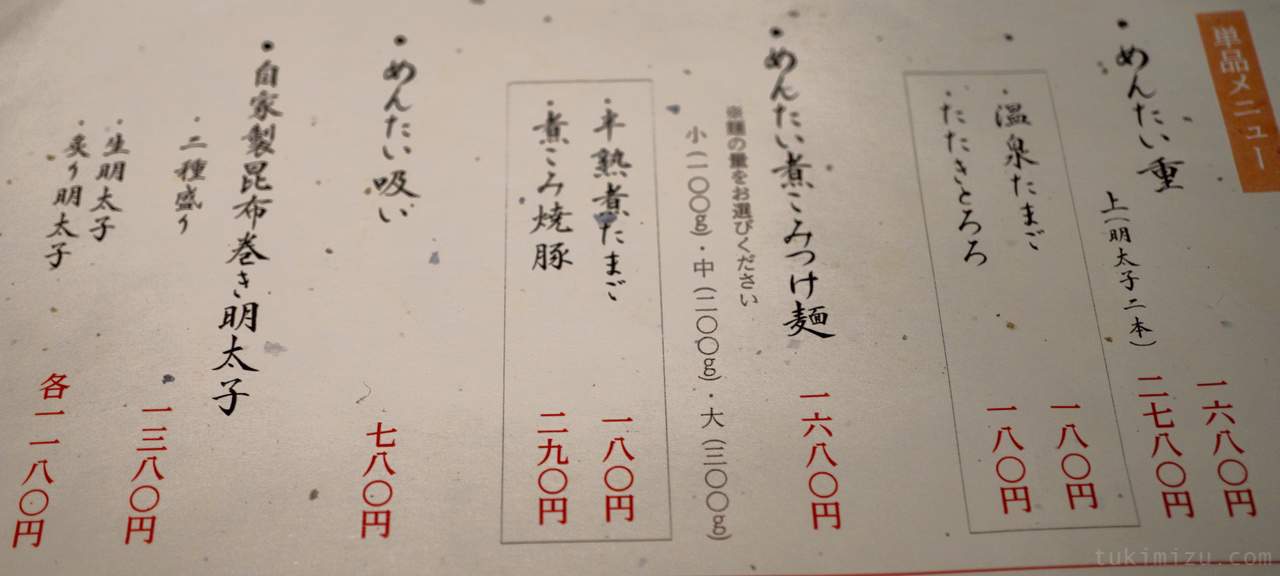 単品メニュー
・めんたい重 一六八〇円
上(明太子二本) 二七八〇円
・温泉たまご 一八〇円
・たたきとろろ 一八〇円
・めんたい煮こみつけ麺 一六八〇円
※麺の量をお選びください
小(一〇〇g)・中(二〇〇g)・大(三〇〇g)
・半熟煮たまご 一八〇円
・煮こみ焼豚 二九〇円
・めんたい吸い 七八〇円
・自家製昆布巻き明太子
・二種盛り 一三八〇円
・生明太子
・炙り明太子 各一一八〇円
tukimizu.com